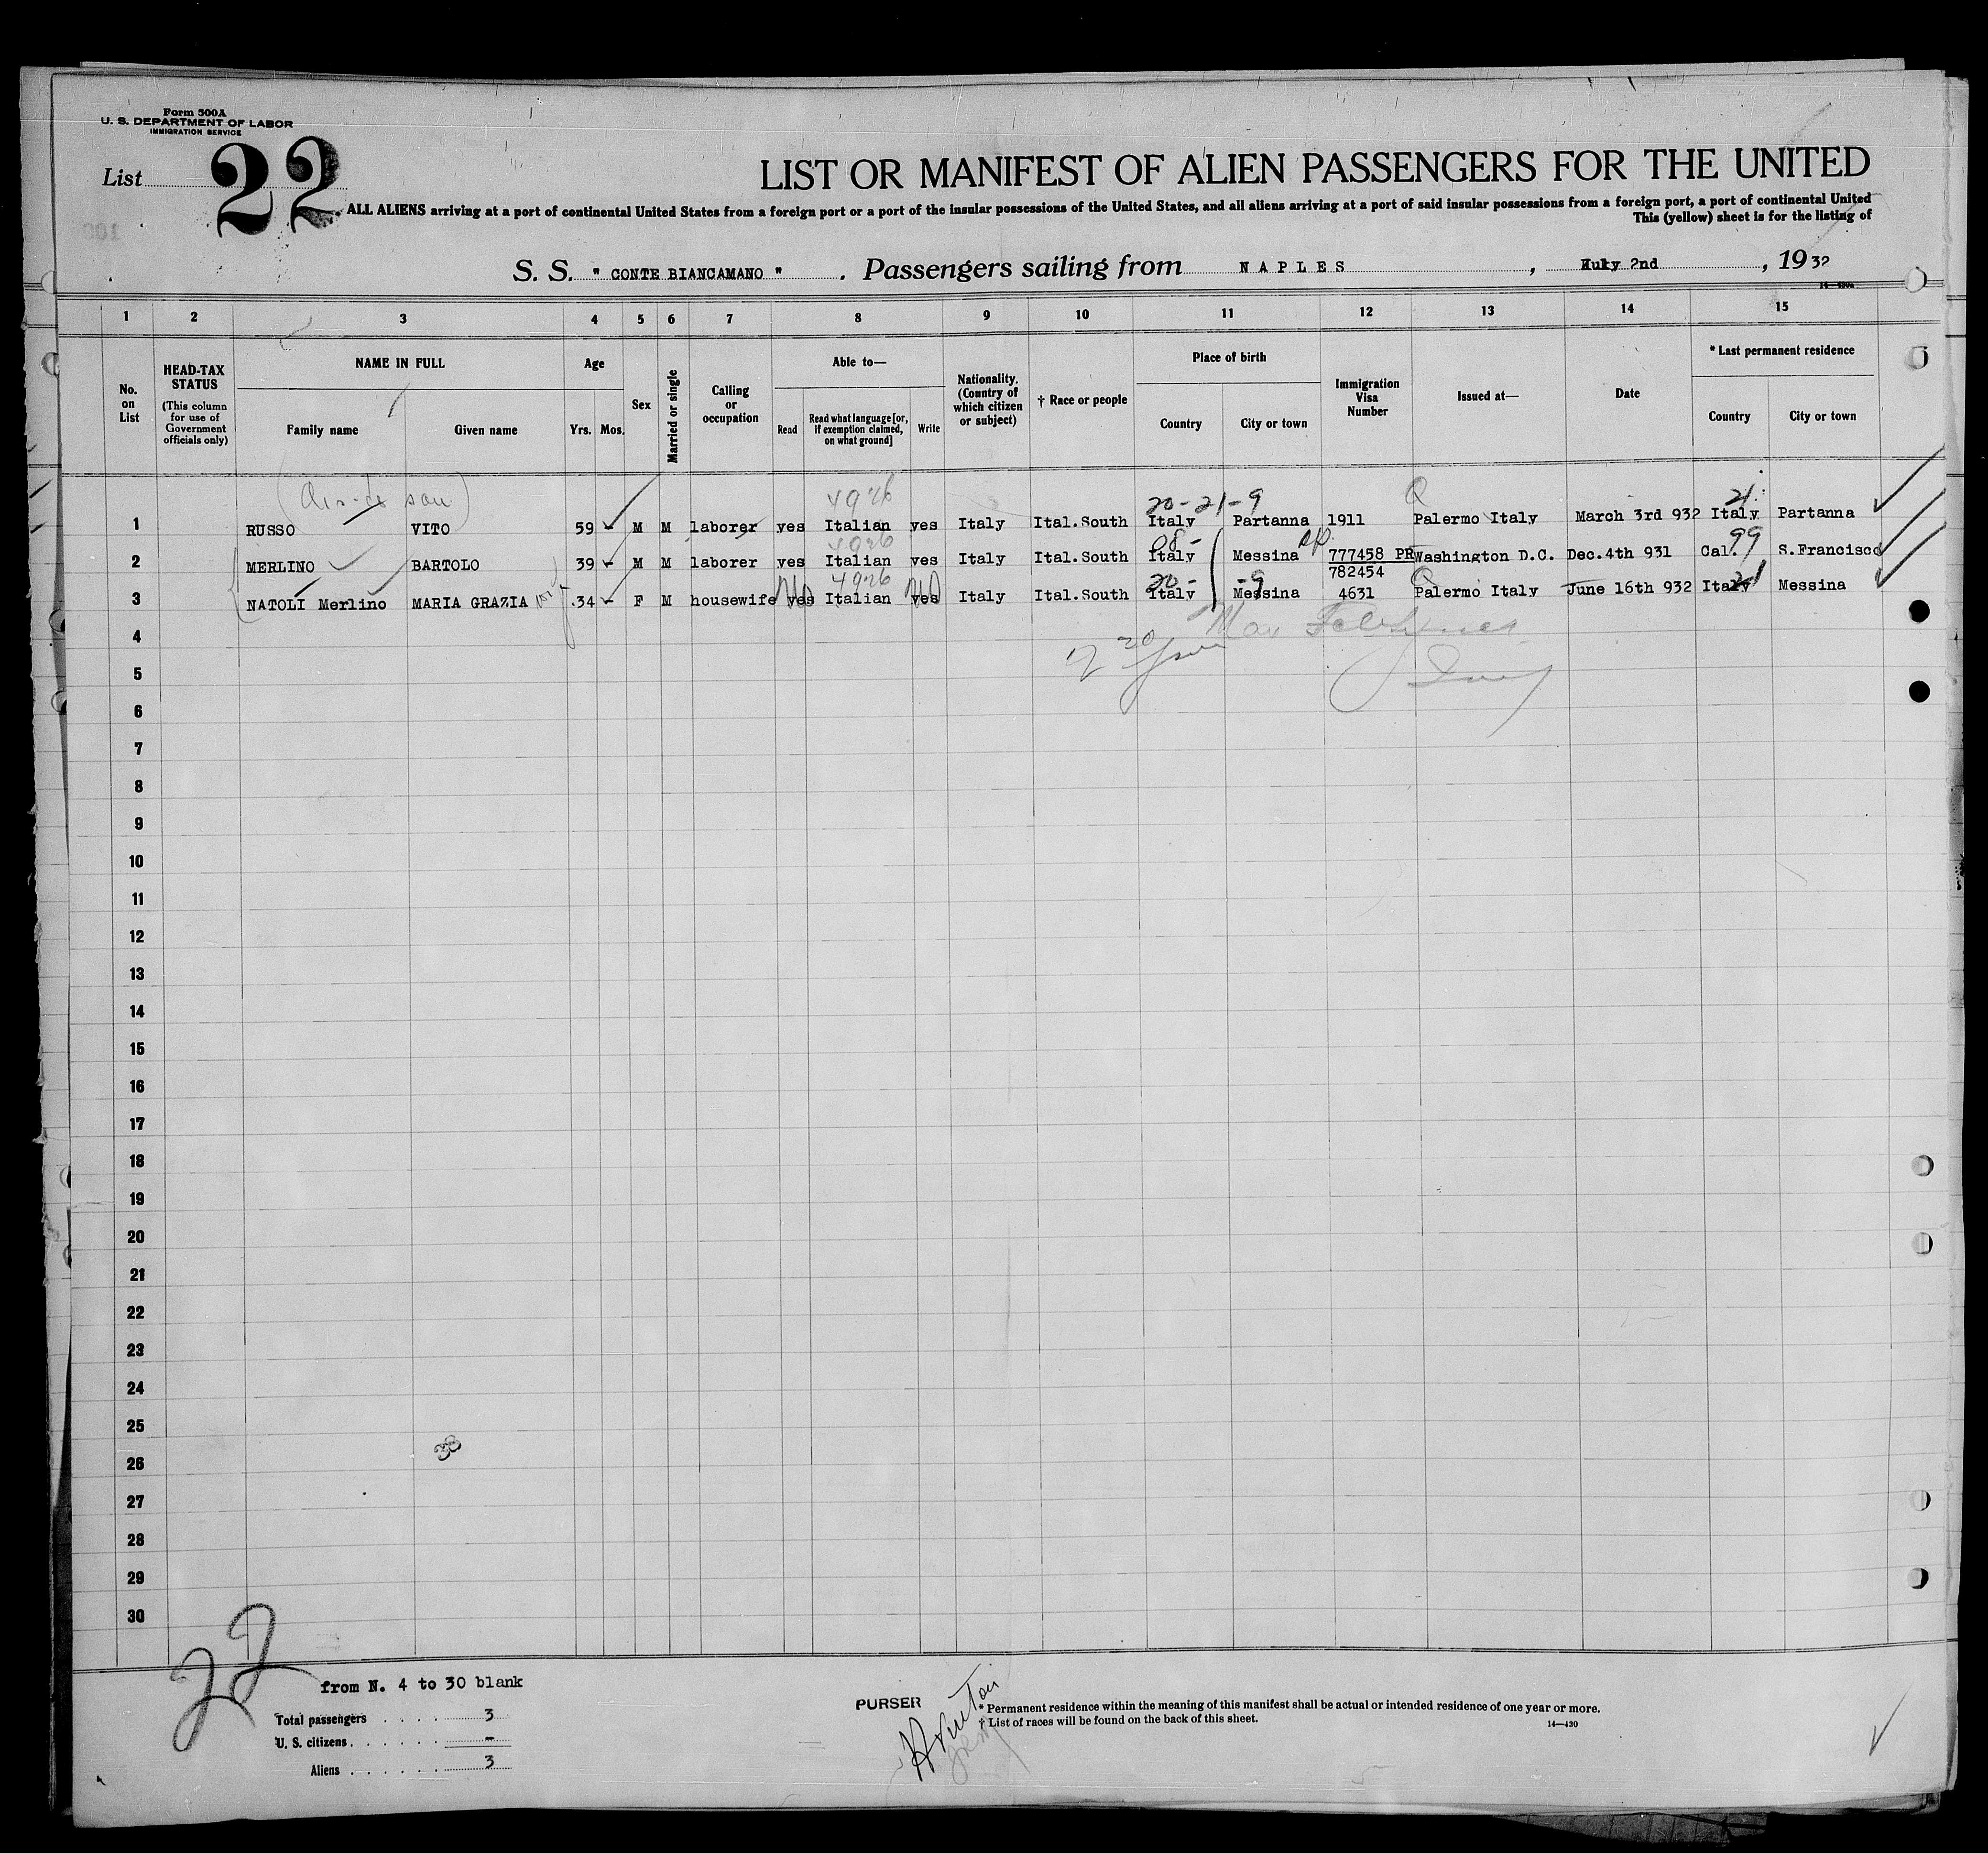 Form 500A
U. S. DEPARTMENT OF LABOR
IMMIGRATION SERVICE
List 22
LIST OR MANIFEST OF ALIEN PASSENGERS FOR THE UNITED
ALL ALIENS arriving at a port of continental United States from a foreign port or a port of the insular possessions of the United States, and all aliens arriving at a port of said insular possessions from a foreign port, a port of continental United
This (yellow) sheet is for the listing of
S. S. " CONTE BIANCAMANO " . Passengers sailing from NAPLES , Huly 2nd , 1932
14—430a
1 2 3 4 5 6 7 8 9 10 11 12 13 14 15
No. on List
HEAD-TAX STATUS
(This column for use of Government officials only)
NAME IN FULL
Family name
Given name
Age
Yrs. Mos.
Sex
Married or single
Calling or occupation
Able to—
Read
Read what language [or, if exemption claimed, on what ground]
Write
Nationality. (Country of which citizen or subject)
† Race or people
Place of birth
Country
City or town
Immigration Visa Number
Issued at—
Date
* Last permanent residence
Country
City or town
4926 20-21-9 21
1 RUSSO VITO 59 - M M laborer yes Italian yes Italy Ital.South Italy Partanna 1911 Palermo Italy March 3rd 932 Italy Partanna
4926 08- 99
2 MERLINO BARTOLO 39 - M M laborer yes Italian yes Italy Ital.South Italy Messina 777458 PR Washington D.C. Dec.4th 931 Cal. S.Francisco
782454
No 4926 No 20- -9 21
3 NATOLI Merlino MARIA GRAZIA 34 - F M housewife yes Italian yes Italy Ital.South Italy Messina 4631 Palermo Italy June 16th 932 Italy Messina
4
5
6
7
8
9
10
11
12
13
14
15
16
17
18
19
20
21
22
23
24
25
26
27
28
29
30
22
from N. 4 to 30 blank
Total passengers . . . . 3
U. S. citizens . . . . . . -
Aliens . . . . . . 3
PURSER
* Permanent residence within the meaning of this manifest shall be actual or intended residence of one year or more.
† List of races will be found on the back of this sheet.
14—430